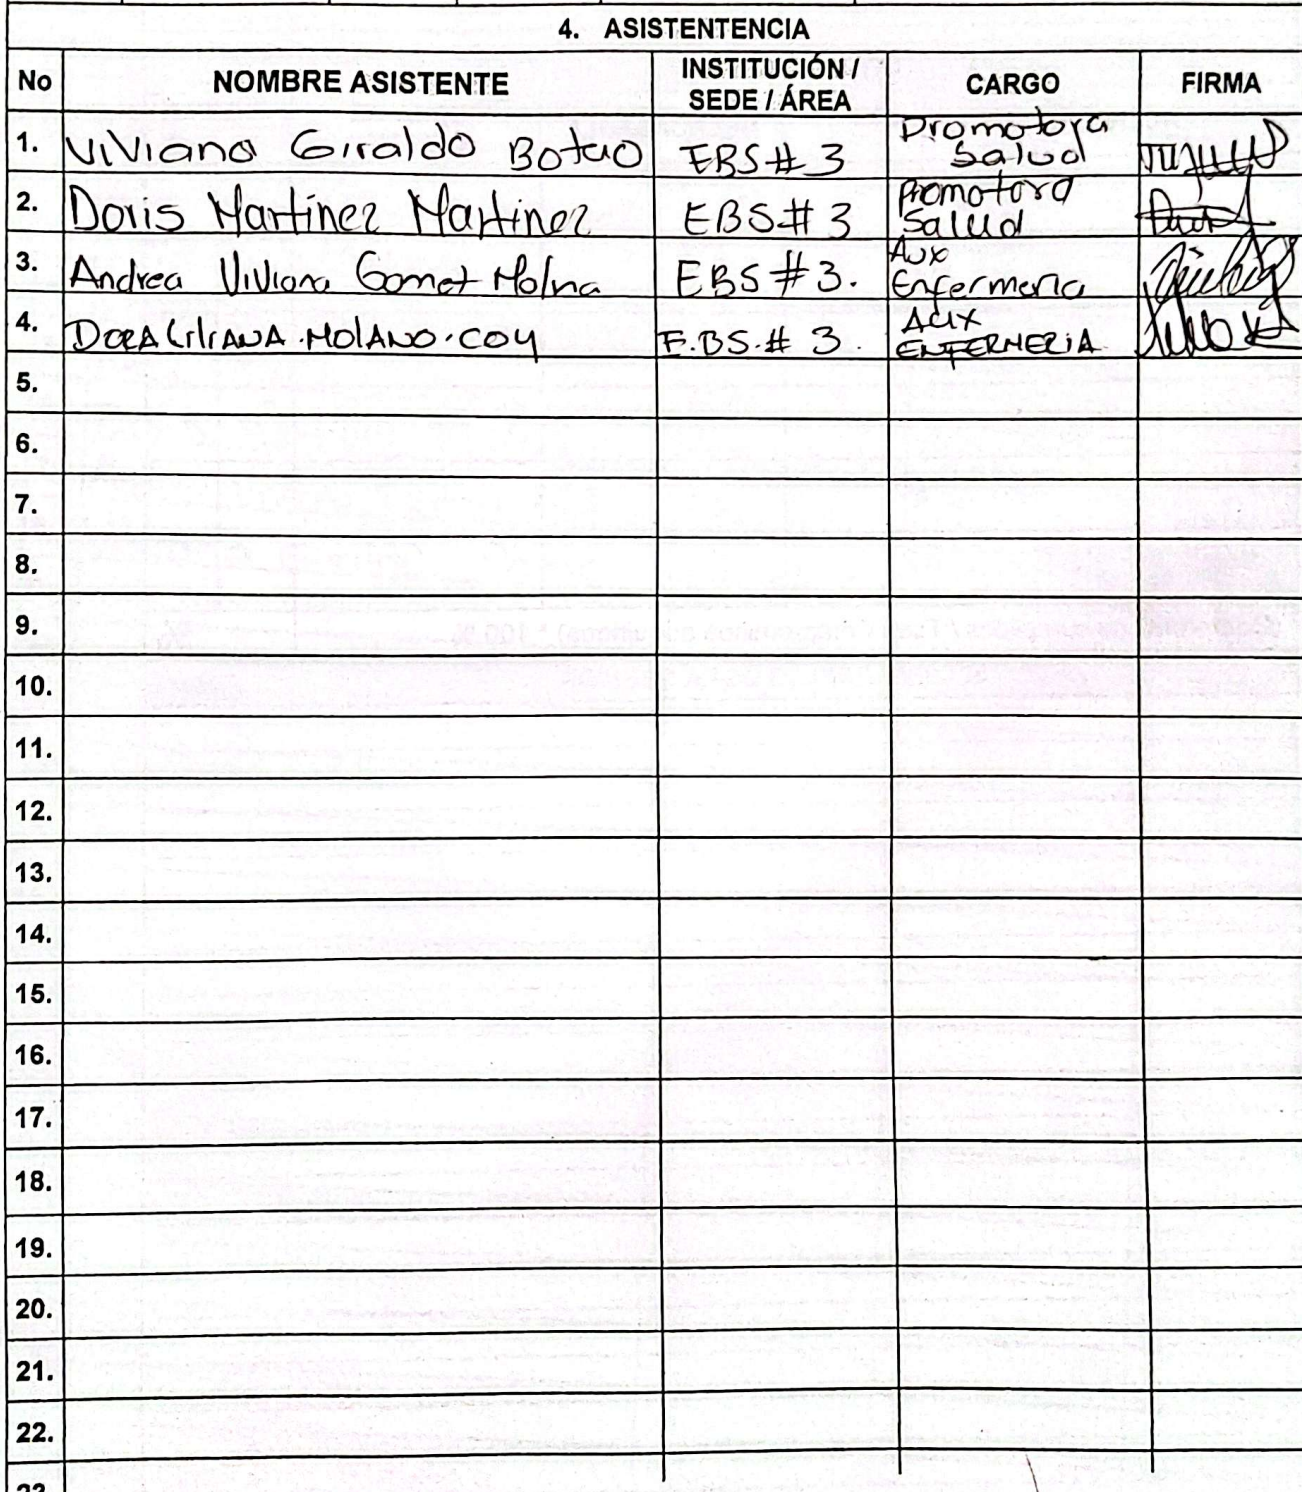 4. ASISTENTENCIA
No NOMBRE ASISTENTE INSTITUCIÓN / SEDE / ÁREA CARGO FIRMA
1. Viviana Giraldo EBS # 3 Promotora Salud
2. Doris Martinez Martinez EBS # 3 Promotora Salud
3. Andrea Viviana Gomez Molina EBS # 3. Aux Enfermeria
4. DORA LILIANA. MOLANO. COY E.BS. # 3. AUX ENFERMERIA
5.
6.
7.
8.
9.
10.
11.
12.
13.
14.
15.
16.
17.
18.
19.
20.
21.
22.
23